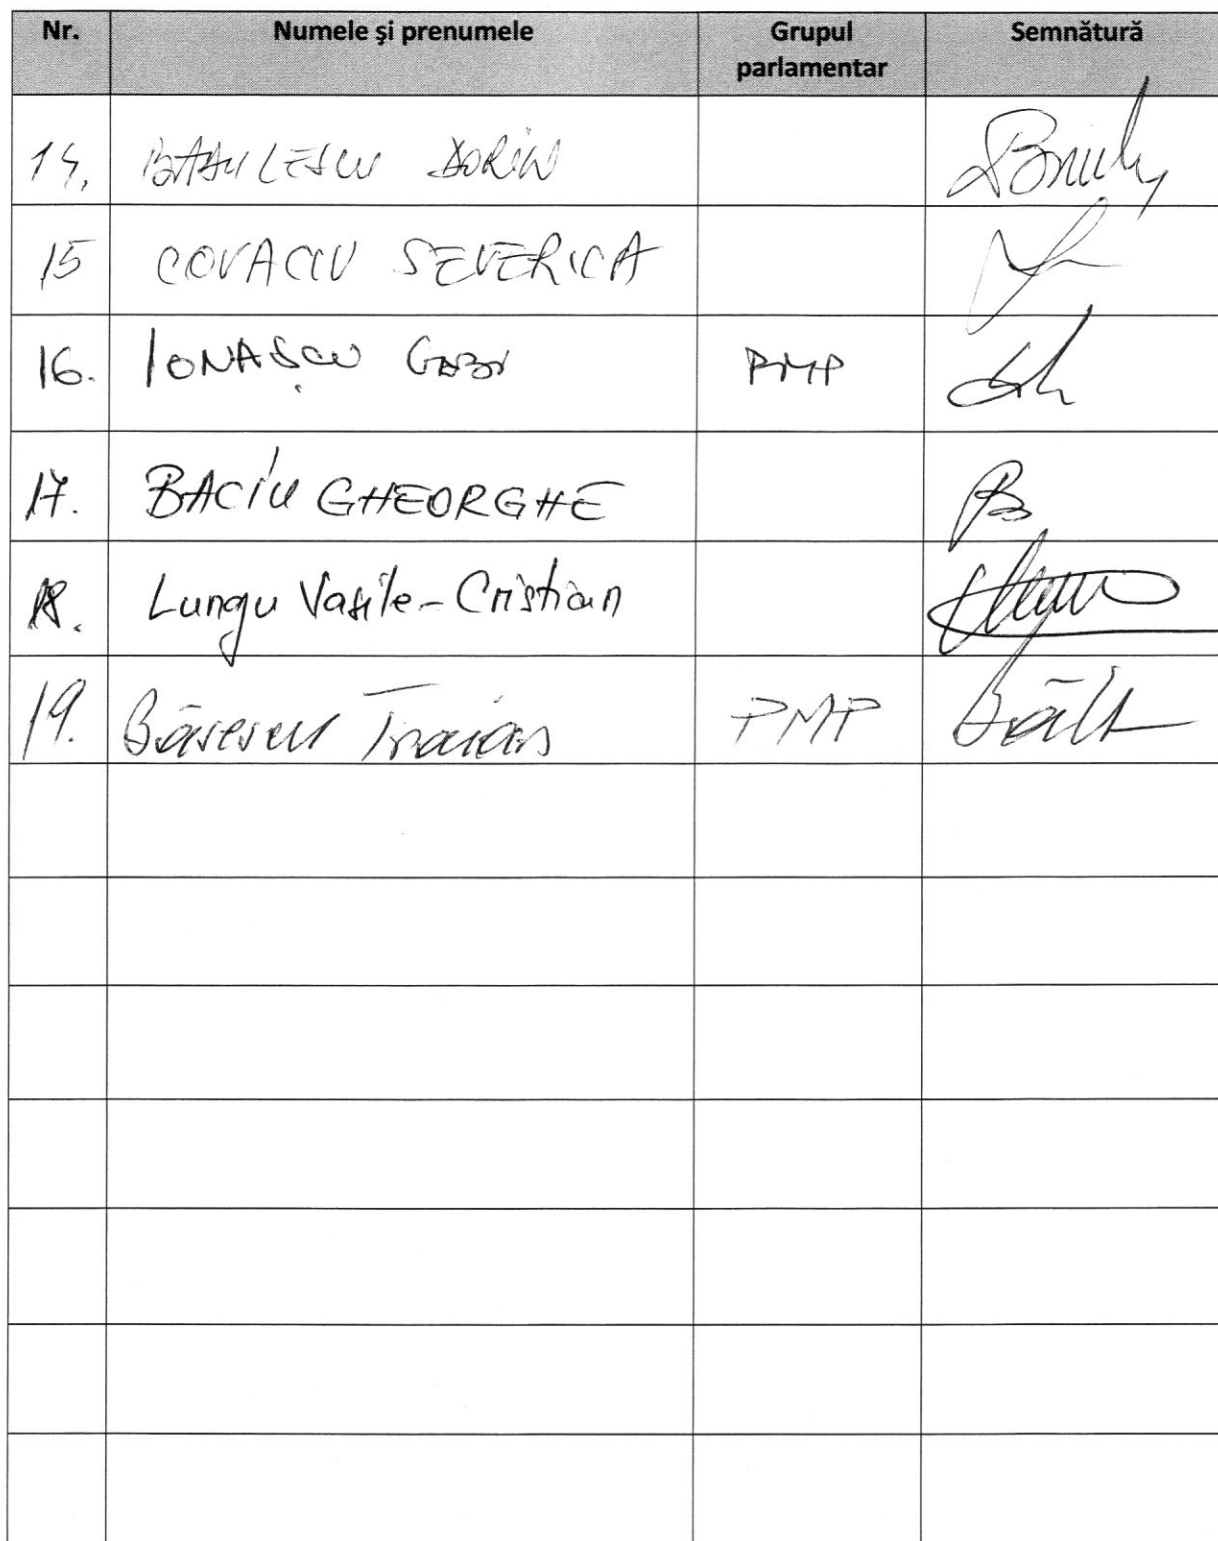 Nr. Numele şi prenumele Grupul parlamentar Semnătură
14. DORIN
15 COVACIU SEVERICA
16. IONAŞCU GABI PMP
17. BACIU GHEORGHE
18. Lungu Vasile-Cristian
19. Băsescu Traian PMP